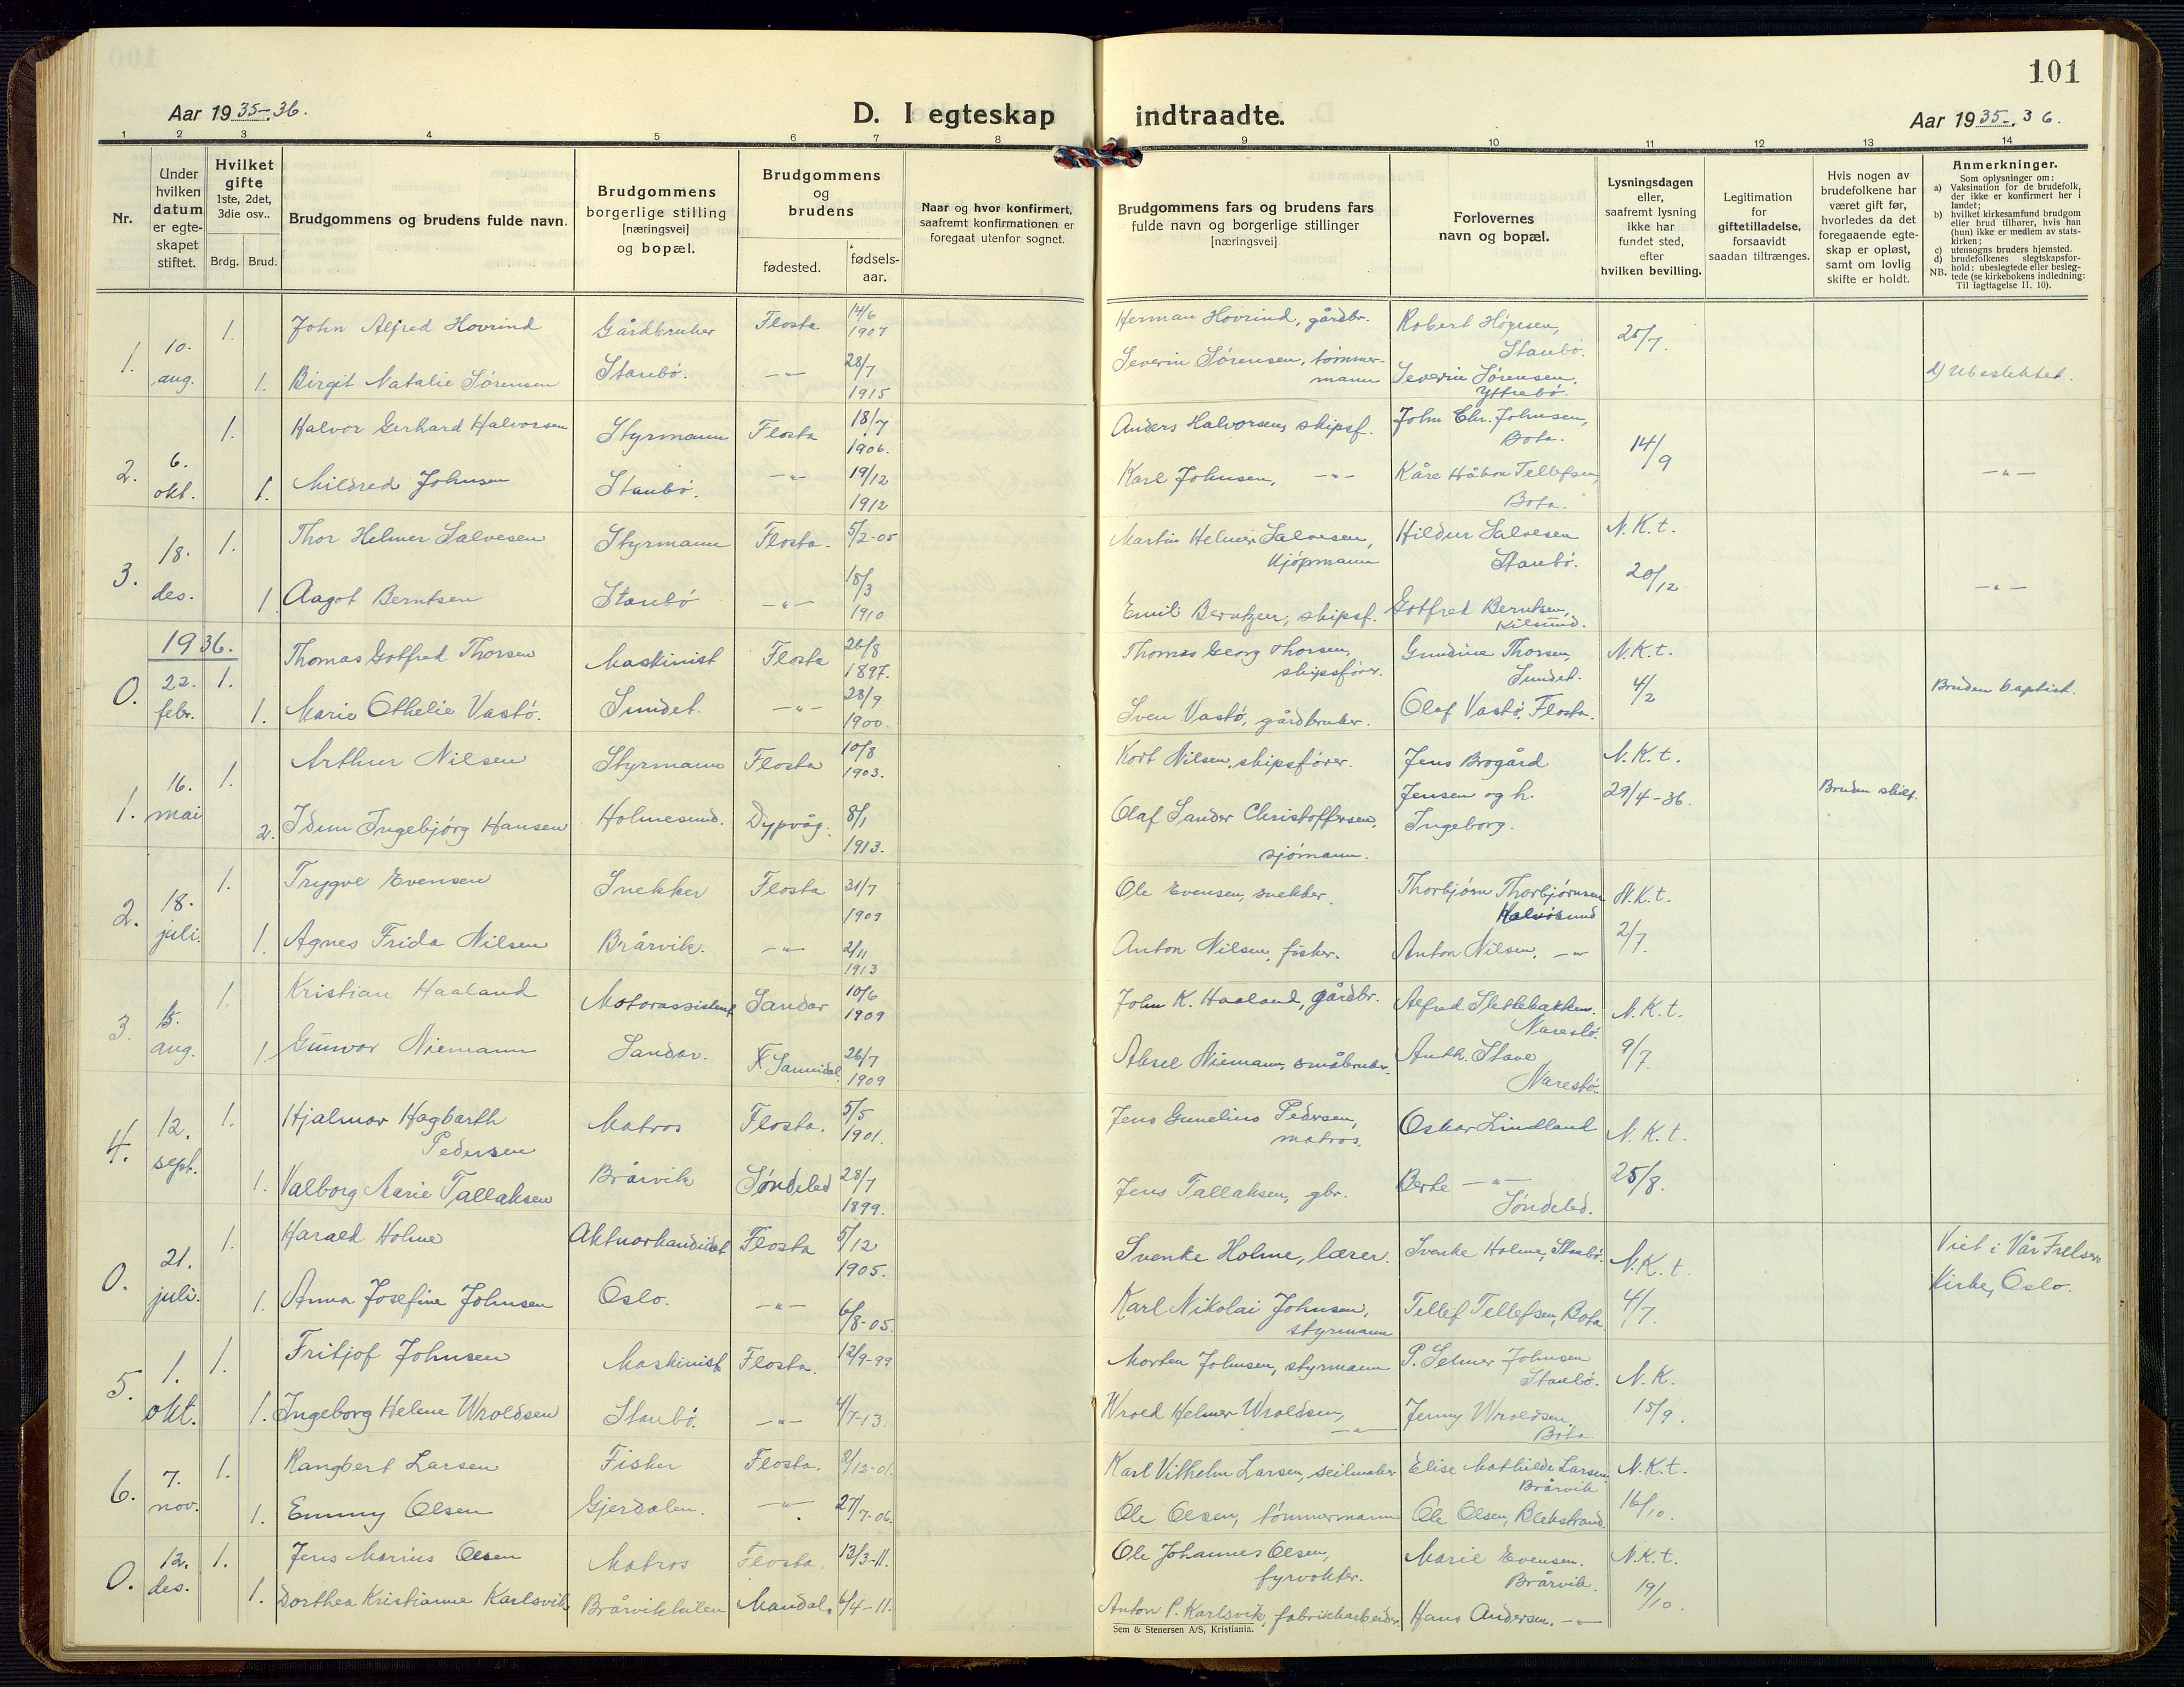 101
Aar 1935-36.
D. I egteskap indtraadte.
Aar 1935-36.
1 2 3 4 5 6 7 8 9 10 11 12 13 14
Nr.
Under hvilken datum er egteskapet stiftet.
Hvilket gifte 1ste, 2det, 3die osv..
Brdg. Brud.
Brudgommens og brudens fulde navn.
Brudgommens borgerlige stilling [næringsvei] og bopæl.
Brudgommens og brudens
fødested.
fødsels-aar.
Naar og hvor konfirmert, saafremt konfirmationen er foregaat utenfor sognet.
Brudgommens fars og brudens fars fulde navn og borgerlige stillinger [næringsvei]
Forlovernes navn og bopæl.
Lysningsdagen eller, saafremt lysning ikke har fundet sted, efter hvilken bevilling.
Legitimation for giftetilladelse, forsaavidt saadan tiltrænges.
Hvis nogen av brudefolkene har været gift før, hvorledes da det foregaaende egteskap er opløst, samt om lovlig skifte er holdt.
Anmerkninger.
Som oplysninger om:
a) Vaksination for de brudefolk, der ikke er konfirmert her i landet;
b) hvilket kirkesamfund brudgom eller brud tilhører, hvis han (hun) ikke er medlem av statskirken;
c) utensogns bruders hjemsted.
d) brudefolkenes slegtskapsforhold: ubeslegtede eller beslegtede (se kirkebokens indledning: Til iagttagelse II. 10).
NB.
1. 10. aug. 1. John Alfred Hovrind Gårdbruker Flosta 14/6 1907 Herman Hovrind, gårdbr. Robert Høgesen, Staubø. 25/7.
1. Birgit Natalie Sørensen Staubø. -"- 28/7 1915 Severin Sørensen, tømmermann Severin Sørensen, Yttrebø. d) Ubeslektet.
2. 6. okt. 1. Halvor Gerhard Halvorsen Styrmann Flosta 18/7 1906. Anders Halvorsen, skipsf. John Chr. Johnsen, Bota. 14/9
1. Mildred Johnsen Staubø. -"- 19/12 1912 Karl Johnsen, -"- Kåre Håkon Tellefsen, Bota. -"-
3. 18. des. 1. Thor Helmer Salvesen Styrmann Flosta. 5/2-05 Martin Helmer Salvesen, Kjøpmann Hildur Salvesen Staubø. N.K.t.
1 Aagot Berntsen Staubø -"- 18/3 1910 Emil Berntzen, skipsf. Gotfred Berntsen, Kilsund. 20/12 -"-
1936.
0. 22. febr. 1. Thomas Gotfred Thorsen Maskinist Flosta 26/8 1897. Thomas Georg Thorsen, skipsfører. Gundine Thorsen, Sundet. N.K.t.
1. Marie Othelie Vastø. Sundet. -"- 28/9 1900. Sven Vastø, gårdbruker. Olaf Vastø, Flosta. 4/2 Bruden baptist.
1. 16. mai 1. Arthur Nilsen Styrmann Flosta 10/8 1903. Kort Nilsen, skipsfører. Jens Brogård N.K.t.
2. Idun Ingebjørg Hansen Holmesund. Dypvåg. 8/1 1913. Olaf Sander Christoffersen, sjømann. Jensen og h. Ingeborg. 29/4-36. Bruden skilt.
2. 18. juli. 1. Trygve Evensen Snekker Flosta 31/7 1909 Ole Evensen, snekker. Thorbjørn Thorbjørnsen Kalvøsund N.K.t.
1. Agnes Frida Nilsen Brårvik. -"- 2/11 1913 Anton Nilsen, fisker. Anton Nilsen, -"- 2/7.
3. 15. aug. 1. Kristian Haaland Motorassistent Sandar 10/6 1909 John K. Haaland, gårdbr. Alfred Slettebakken. Narestø. N.K.t.
1. Gunvor Niemann Sandar. Sannidal 26/7 1909 Aksel Niemann, småbruker. Anth. Stave Narestø. 9/7.
4. 12. sept. 1. Hjalmar Hagbarth Pedersen Matros Flosta. 5/5 1901. Jens Gunelius Pedersen, matros. Oskar Lindland N.K.t.
1. Valborg Marie Tallaksen Brårvik Søndeled 28/7 1899. Jens Tallaksen, gbr. Berte -"- Søndeled. 25/8.
0. 21. juli. 1. Harald Holme Aktuarkandidat Flosta 5/12 1905. Svenke Holme, lærer. Svenke Holme, Staubø. N.K.t. Viet i Vår Frelsers Kirke, Oslo.
1. Anna Josefine Johnsen Oslo. -"- 6/8-05. Karl Nikolai Johnsen, styrmann Tellef Tellefsen, Bota. 4/7.
5. 1. okt. 1. Fritjof Johnsen Maskinist Flosta. 12/9-99 Morten Johnsen, styrmann P. Selmer Johnsen Staubø. N.K.
1. Ingeborg Helene Wroldsen Staubø. -"- 4/7-13. Wrold Helmer Wroldsen, -"- Jenny Wroldsen, Bota 15/9.
6. 7. nov. 1. Rangbert Larsen Fisker Flosta. 2/12-01. Karl Vilhelm Larsen, seilmaker Elise Mathilde Larsen, Brårvik N.K.t.
1. Emmy Olsen Gjerdalen. -"- 27/7-06. Ole Olsen, tømmermann Ole Olsen, Blekstrand. 16/10.
0. 12. des. 1. Jens Marius Olsen Matros Flosta. 13/3-11. Ole Johannes Olsen, fyrvokter. Marie Evensen. Brårvik. N.K.t.
1. Dorthea Kristianne Karlsvik Brårvikkilen Mandal. 6/4-11. Anton P. Karlsvik, fabrikkarbeider. Hans Andersen. -"- 19/10.
Sem & Stenersen A/S, Kristiania.